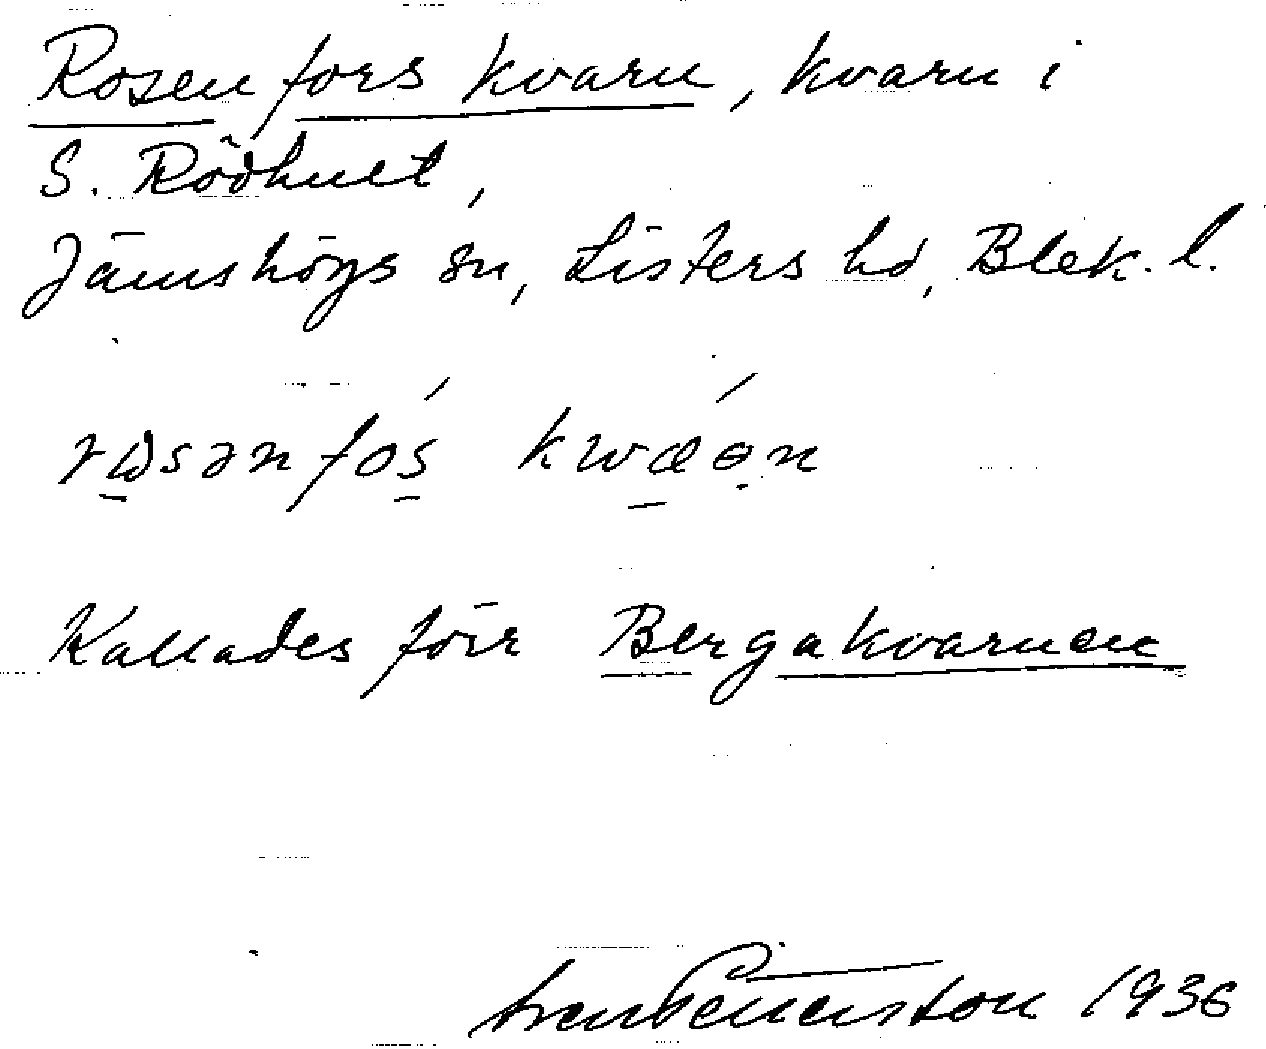 Rosenfors kvarn, kvarn i
S. Rödhult,
Jämshögs sn, Listers hd, Blek. l.
kwæən
Kallades förr Bergakvarnen
1936